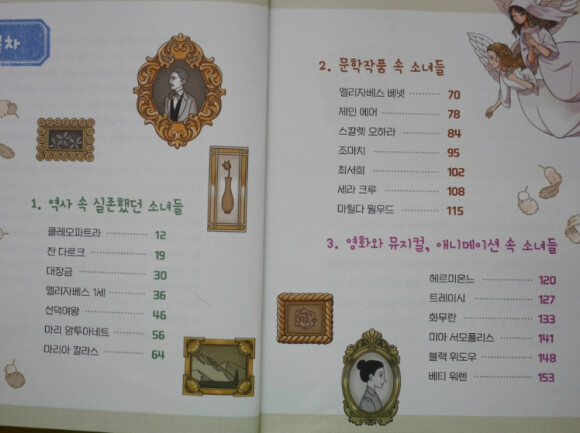 차
1. 역사 속 실존했던 소녀들
클레오파트라 12
잔 다르크 19
대장금 30
엘리자베스 1세 36
선덕여왕 46
마리 앙투아네트 56
마리아 칼라스 64
2. 문학작품 속 소녀들
엘리자베스 베넷 70
제인 에어 78
스칼렛 오하라 84
조마치 95
최서희 102
세라 크루 108
마틸다 웜우드 115
3. 영화와 뮤지컬, 애니메이션 속 소녀들
헤르미온느 120
트레이시 127
화무란 133
미아 서모폴리스 141
블랙 위도우 148
베티 워렌 153